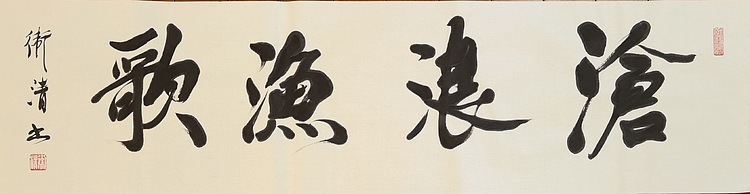 滄浪漁歌
衛清书